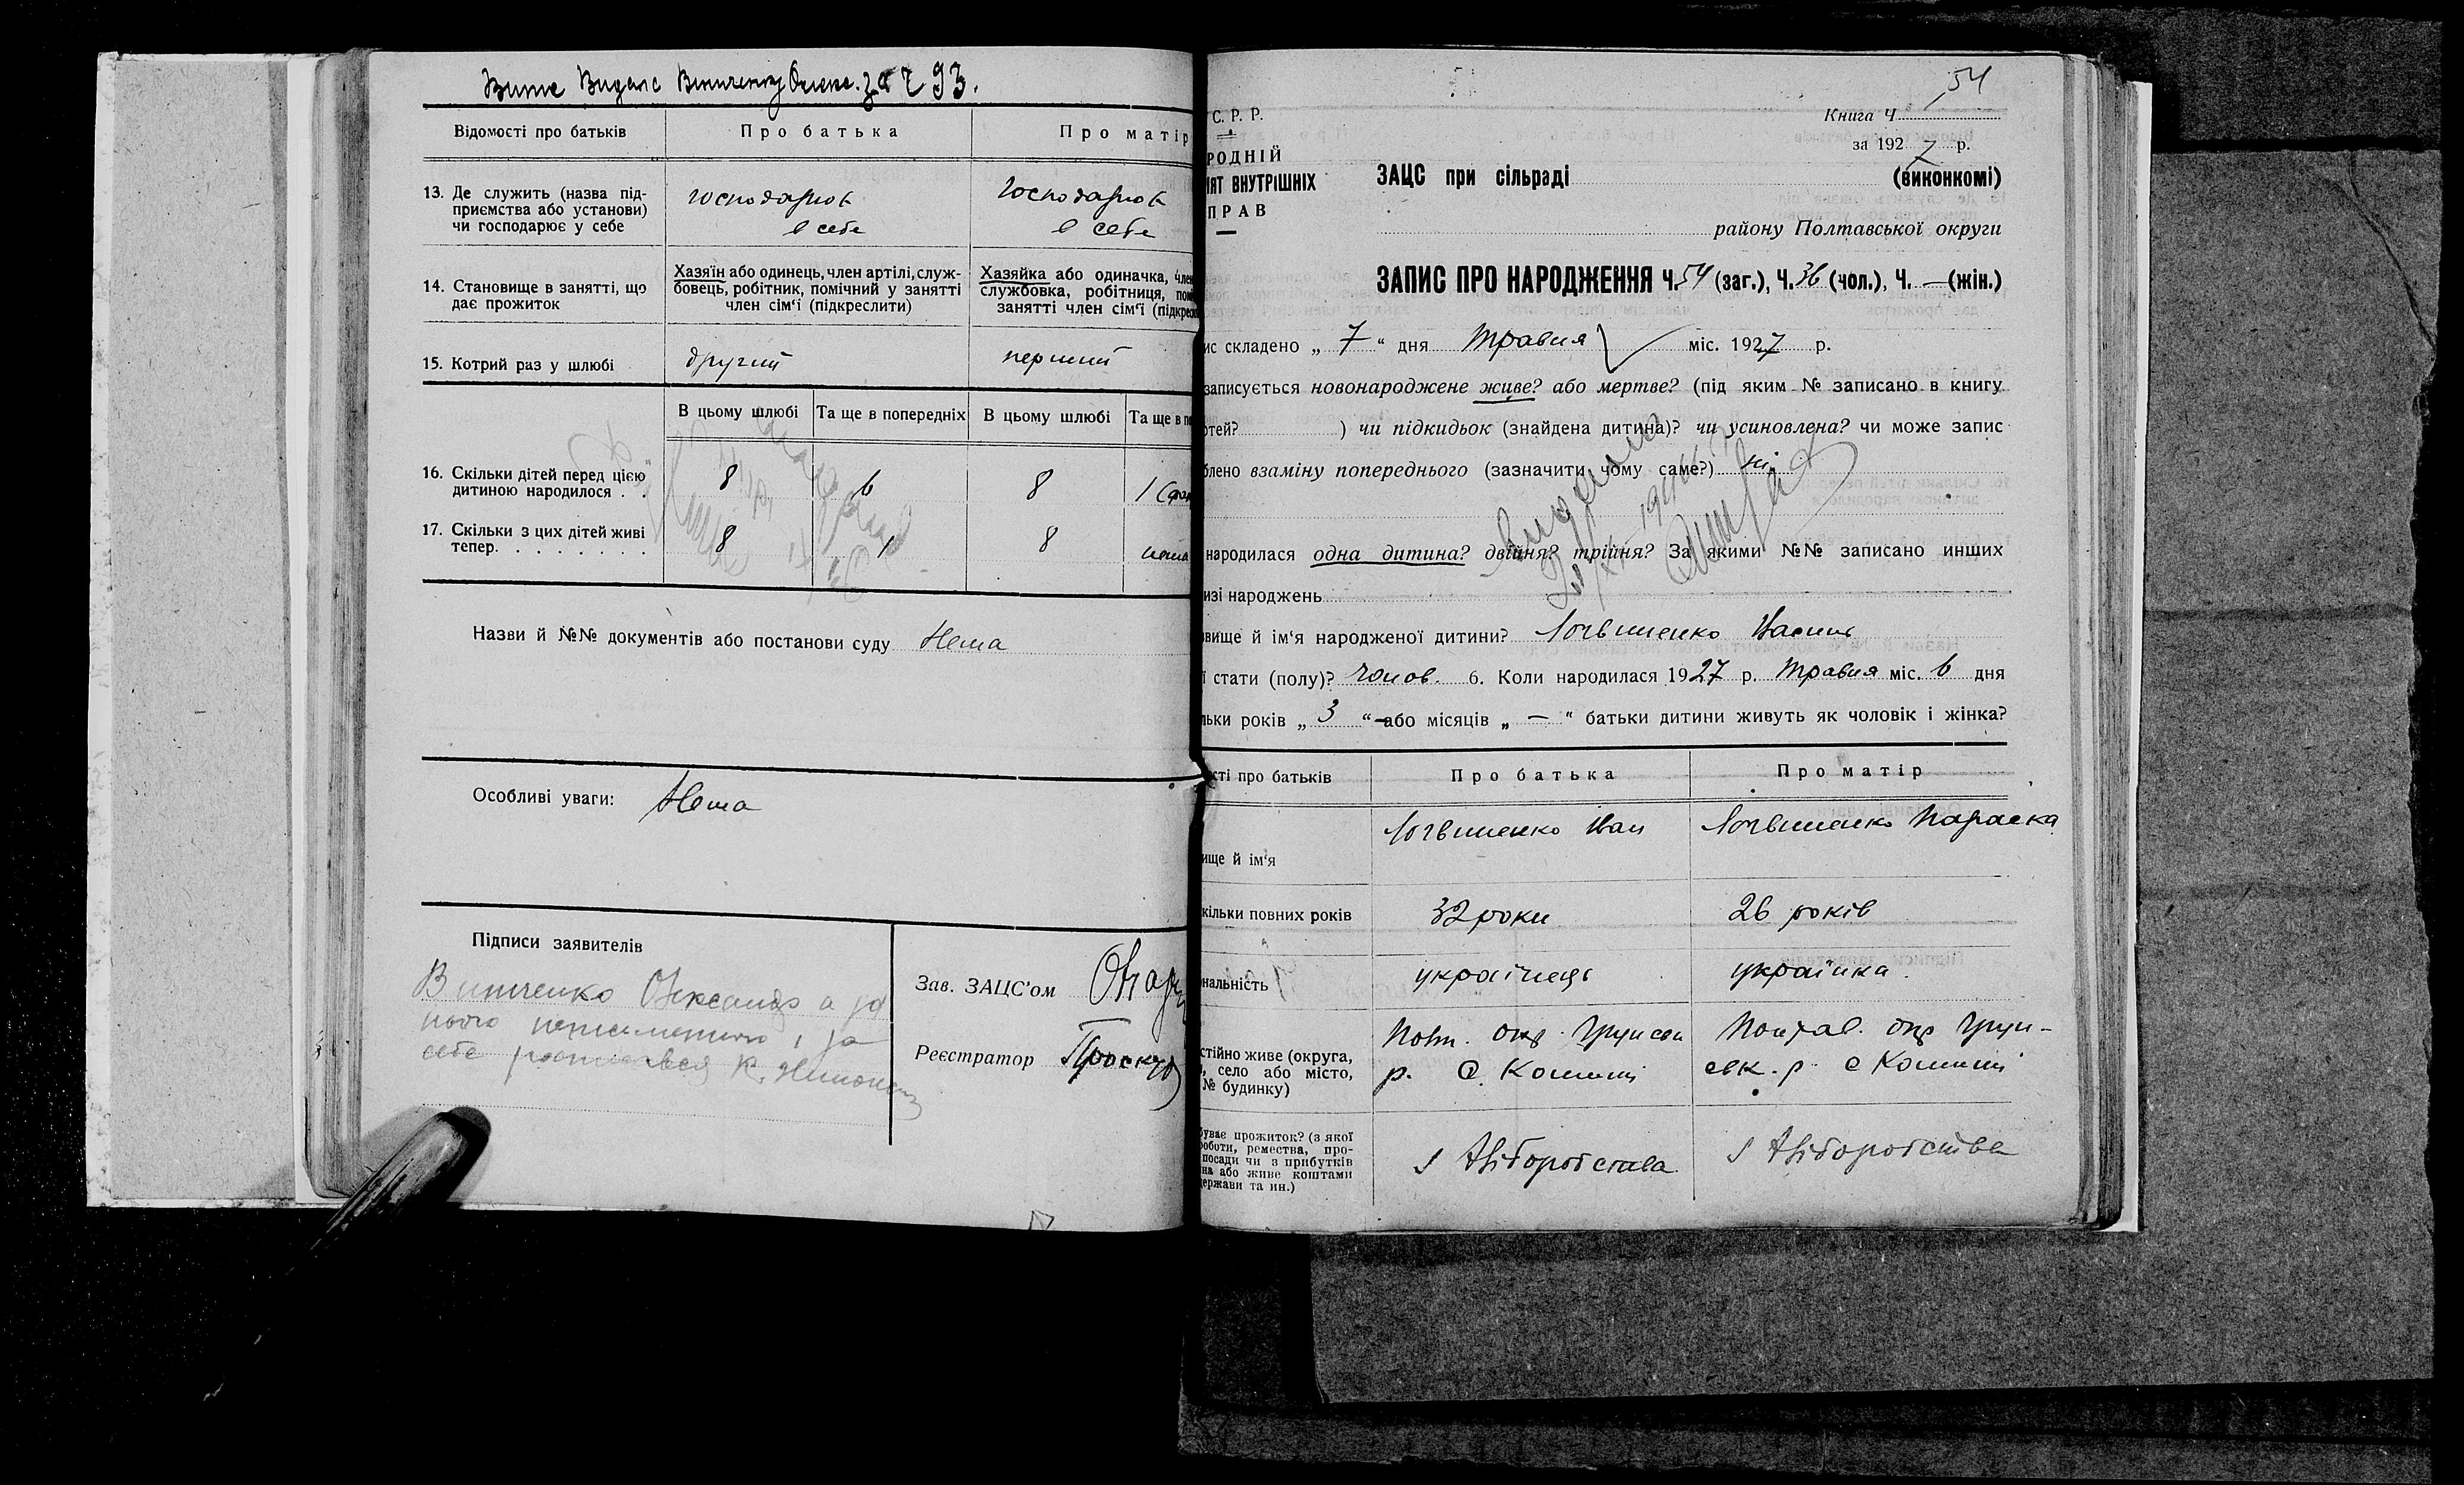 за ч 93.
Відомості про батьків
Про батька
Про матір
13. Де служить (назва під-
приємства або установи)
чи господарює у себе
господарює
в себе
господарює
в себе
14. Становище в занятті, що
дає прожиток
Хазяїн або одинець, член артілі, служ-
бовець, робітник, помічний у занятті
член сім'ї (підкреслити)
Хазяйка або одиначка, член
службовка, робітниця, пом
занятті член сім'ї (підкрес
15. Котрий раз у шлюбі
другий
перший
В цьому шлюбі
Та ще в попередніх
В цьому шлюбі
Та ще в по
16. Скільки дітей перед цією
дитиною народилося . .
8
6
8
1
17. Скільки з цих дітей живі
тепер. . . . . . . .
8
1
8
Назви й №№ документів або постанови суду Нема
Особливі уваги: Нема
Підписи заявителів
Винниченко Олександр а за
нього неписьменного і за
себе розписався К.
Зав. ЗАЦС'ом
Реєстратор Проскур
54
С. Р. Р.
Книга Ч.
за 1927 р.
РОДНІЙ
ІЯТ ВНУТРІШНІХ
ПРАВ
ЗАЦС при сільраді (виконкомі)
району Полтавської округи
ЗАПИС ПРО НАРОДЖЕННЯ Ч. 54 (заг.), Ч. 36 (чол.), Ч. — (жін.)
ис складено „ 7 “ дня травня міс. 1927 р.
записується новонароджене живе? або мертве? (під яким № записано в книгу
ртей? ) чи підкидьок (знайдена дитина)? чи усиновлена? чи може запис
блено взаміну попереднього (зазначити чому саме?) ні
народилася одна дитина? двійня? трійня? За якими №№ записано инших
изі народжень
вище й ім'я народженої дитини? Логвиненко Василь
ї стати (полу)? чолов. 6. Коли народилася 1927 р. травня міс. 6 дня
льки років „ 3 “ або місяців „ — “ батьки дитини живуть як чоловік і жінка?
сті про батьків
Про батька
Про матір
ище й ім'я
Логвиненко Іван
Логвиненко Параска
кільки повних років
32 роки
26 років
нальність
українець
українка
стійно живе (округа,
, село або місто,
№ будинку)
Полт. окр. Грунськ
р. С.
Полтав. окр Грун-
ськ. р. с
буває прожиток? (з якої
роботи, ремества, про-
посади чи з прибутків
на або живе коштами
держави та ин.)
з хліборобства
з хліборобства